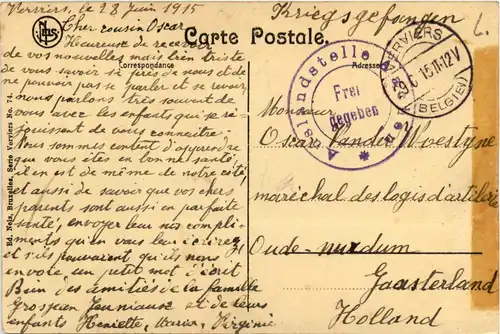 Verviers, le 28 Juin 1915
Kriegsgefangen
Carte Postale.
Correspondance
Adresse
Cher cousin Oscar
Heureuse de recevoir
de vos nouvelles mais très triste
de vous savoir si près de nous et de
ne pouvoir pas se parler et se revoir
nous parlons très souvent de
vous avec les enfants qui se ré-
jouissent de vous connaître.
Nous sommes content d'apprendre
que vous êtes en bonne santé,
il en est de même de notre côté,
et aussi de savoir que vos chers
parents sont aussi en parfaite
santé, envoyer leur nos compli-
ments qu'en vous leur écrirez
et s'ils pouvaient qu'ils nous
envoie un petit mot d'écrit
Bien des amitiés de la famille
Grosjean et de leurs
enfants Henriette, Virginie
Ed. Nels, Bruxelles, Serie Verviers No. 74.
Auslandstelle
Frei
gegeben
VERVIERS
15.11-12V
(BELGIEN)
Monsieur
Oscar Vande Woestyne
maréchal des logis d'artilerie
Oude-mirdum
Gaasterland
Holland